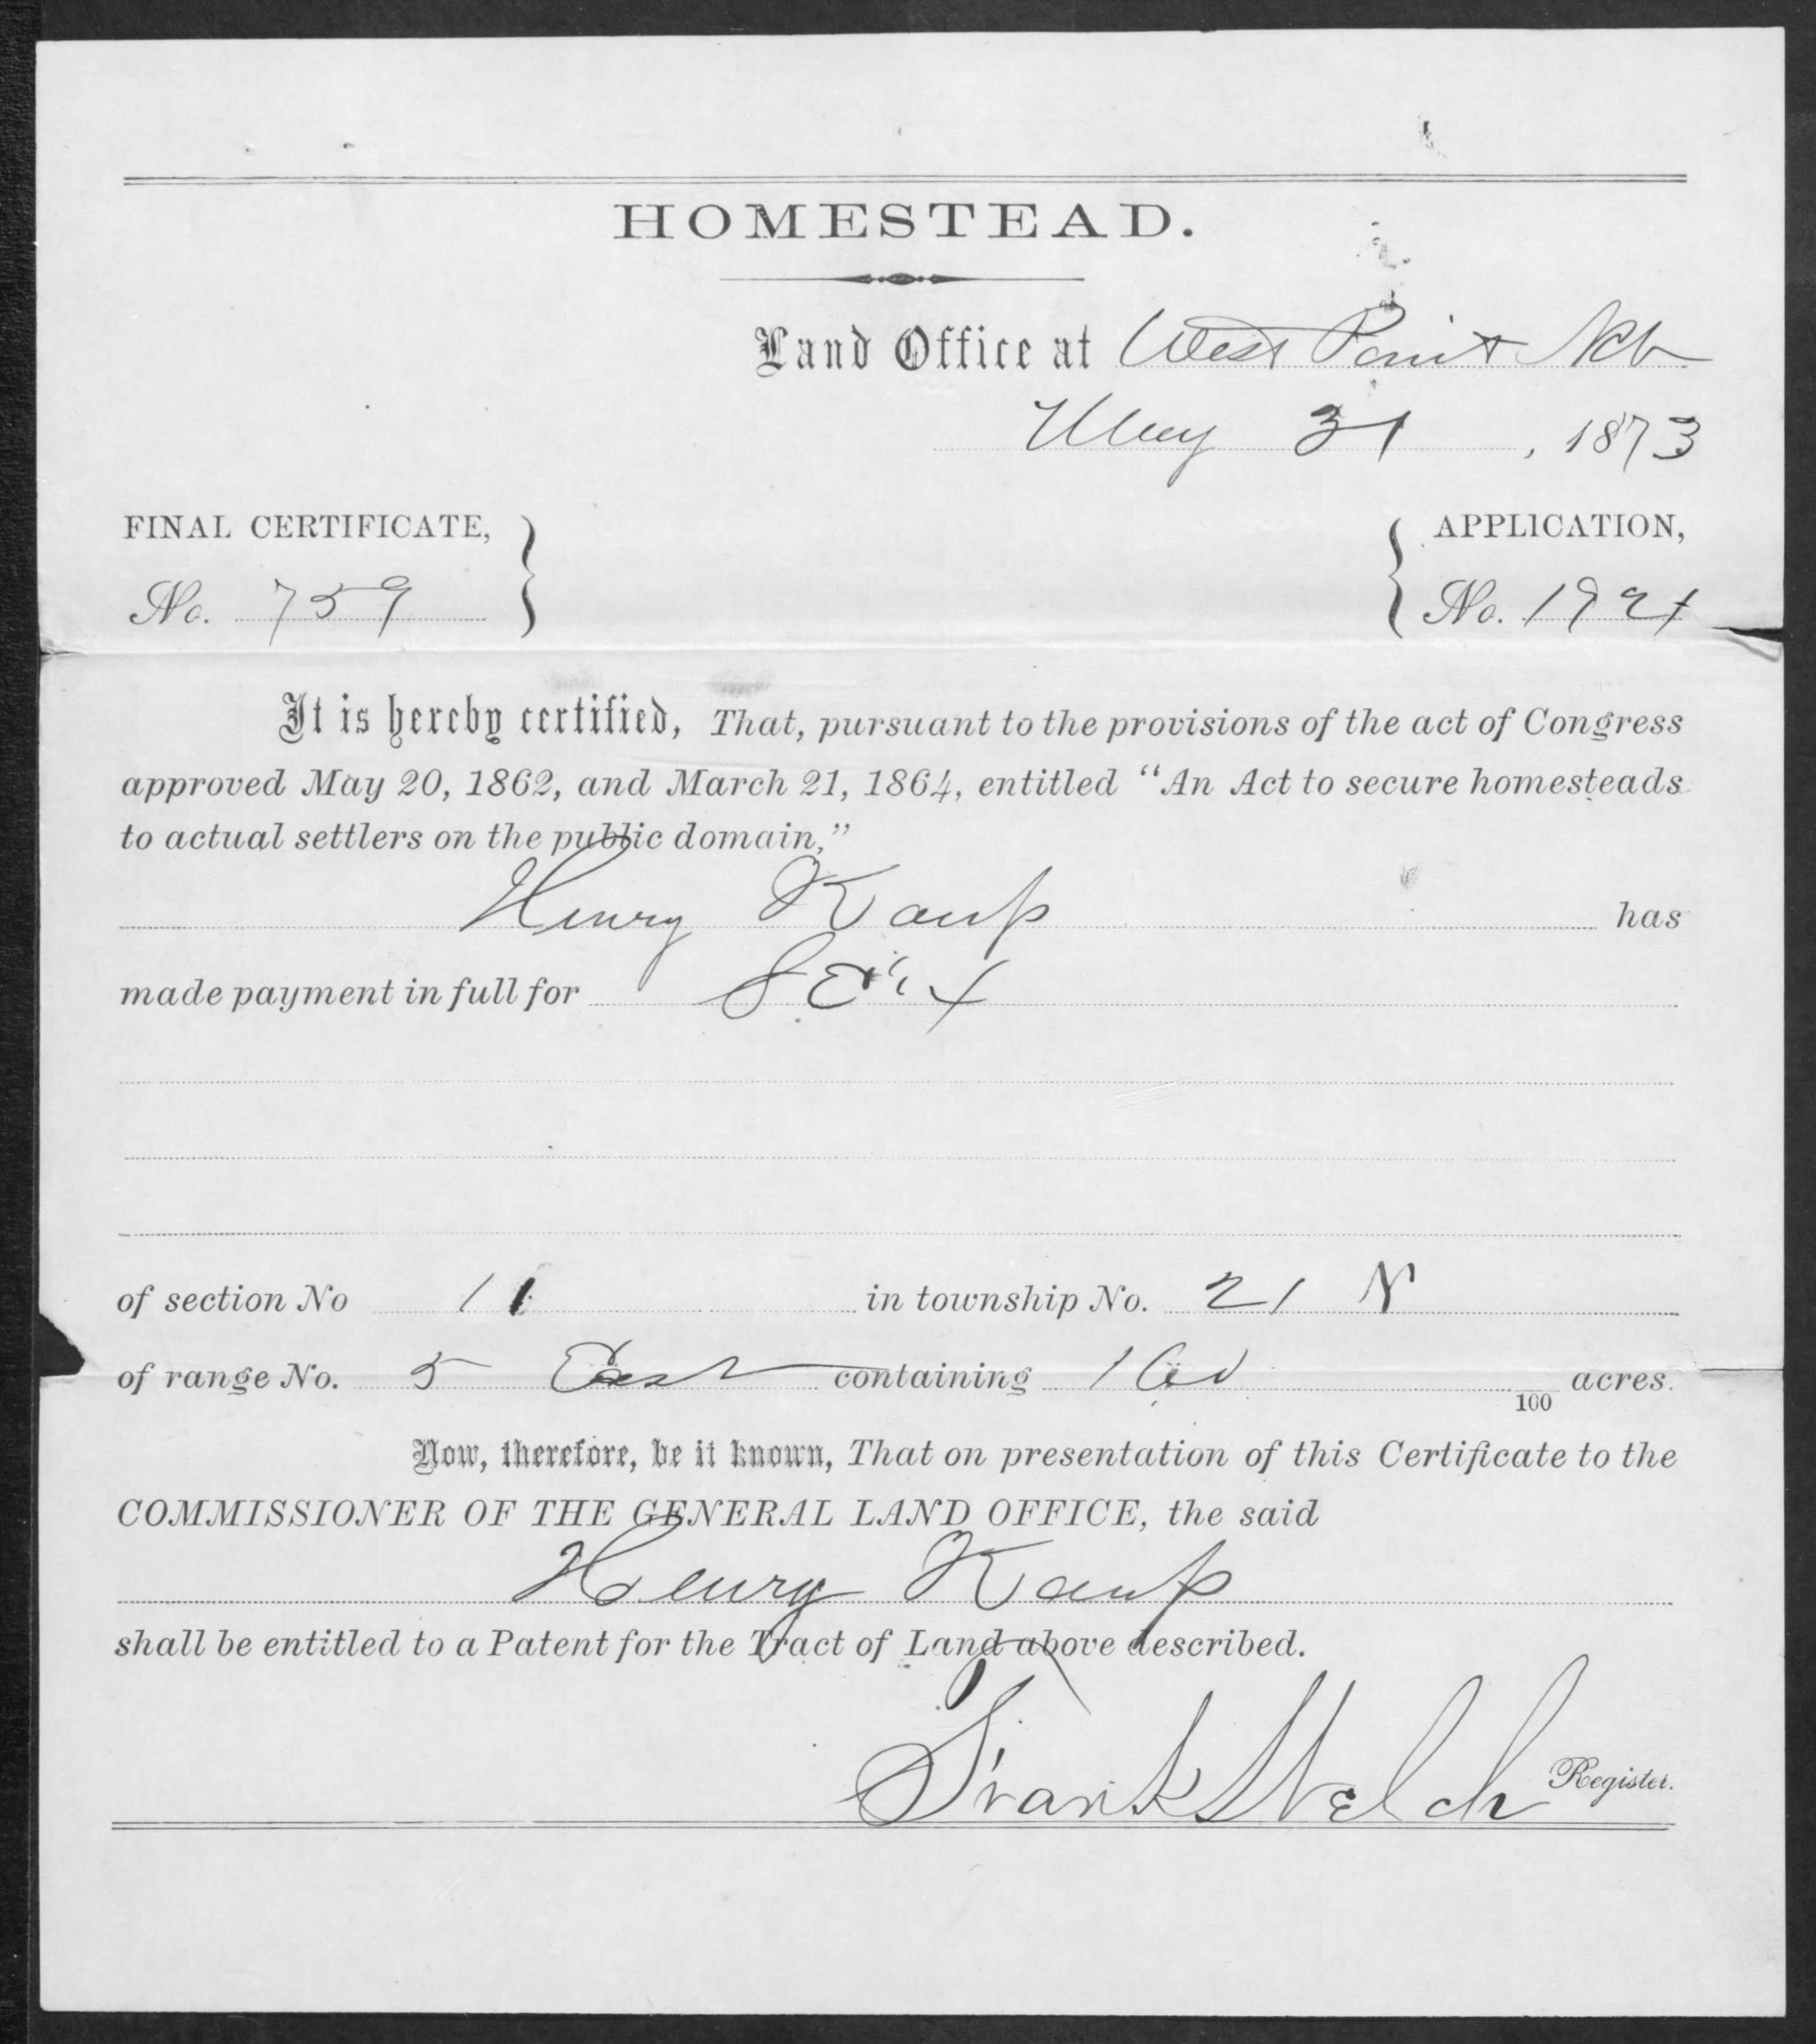 HOMESTEAD.
Land Office at West Point Neb
May 31, 1873
FINAL CERTIFICATE, APPLICATION,
No. 759 No. 1921
It is hereby certified, That, pursuant to the provisions of the act of Congress
approved May 20, 1862, and March 21, 1864, entitled "An Act to secure homesteads
to actual settlers on the public domain,"
Henry Kaup has
made payment in full for S E 1/4
of section No 11 in township No. 21 N
of range No. 5 East containing 160 /100 acres.
Now, therefore, be it known, That on presentation of this Certificate to the
COMMISSIONER OF THE GENERAL LAND OFFICE, the said
Henry Kaup
shall be entitled to a Patent for the Tract of Land above described.
Frank Welch Register.